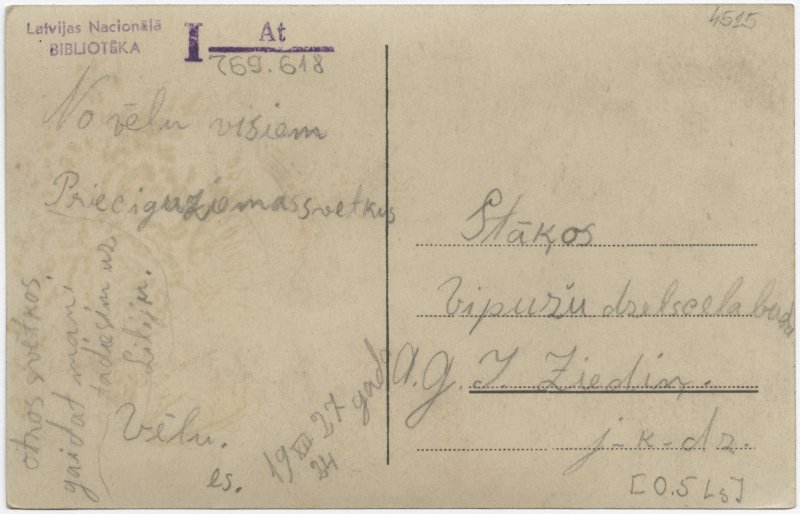 Latvijas Nacionālā
BIBLIOTĒKA
I At
769.618
4515
Novēlu visiem
Priecigu ziemassvetkus
otros svētkos
gaidat mani
uz
Vēlu.
es.
19 XII 27 gada
24
Stāķos
Vipužu dzelscela buda
A. g. J. Ziediņ.
j-k-dz.
[0.5 Ls]